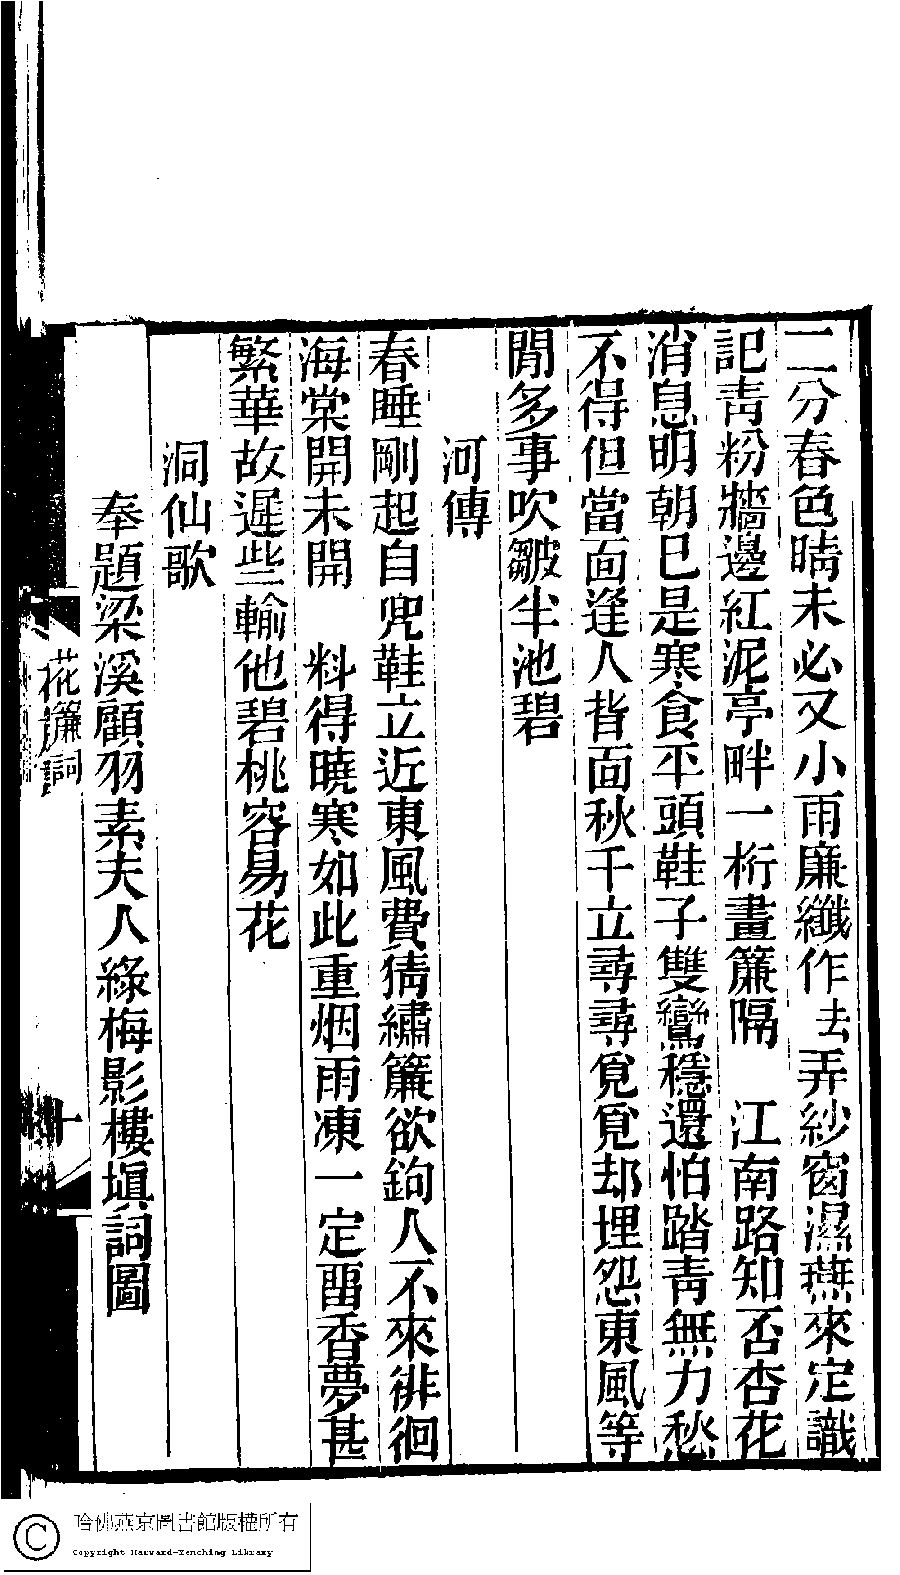 二分春色晴未必又小雨廉纖作去弄紗窗濕燕來定識
記靑粉牆邊紅泥亭畔一桁畫簾隔　江南路知否杏花
消息明朝巳是寒食平頭鞋子雙鸞穩還怕踏靑無力愁
不得但當面逢人背面秋千立尋尋覓覓却埋怨東風等
閒多事吹皺半池碧
河傳
春睡剛起自兜鞋立近東風費猜繡簾欲鉤人不來徘徊
海棠開未開　料得曉寒如此重烟雨凍一定畱香夢甚
繁華故遲些輸他碧桃容易花
洞仙歌
奉題梁溪顧羽素夫人綠梅影樓塡詞圖
花簾詞
十
哈佛燕京圖書館版權所有
Copyright Harvard-Yenching Library